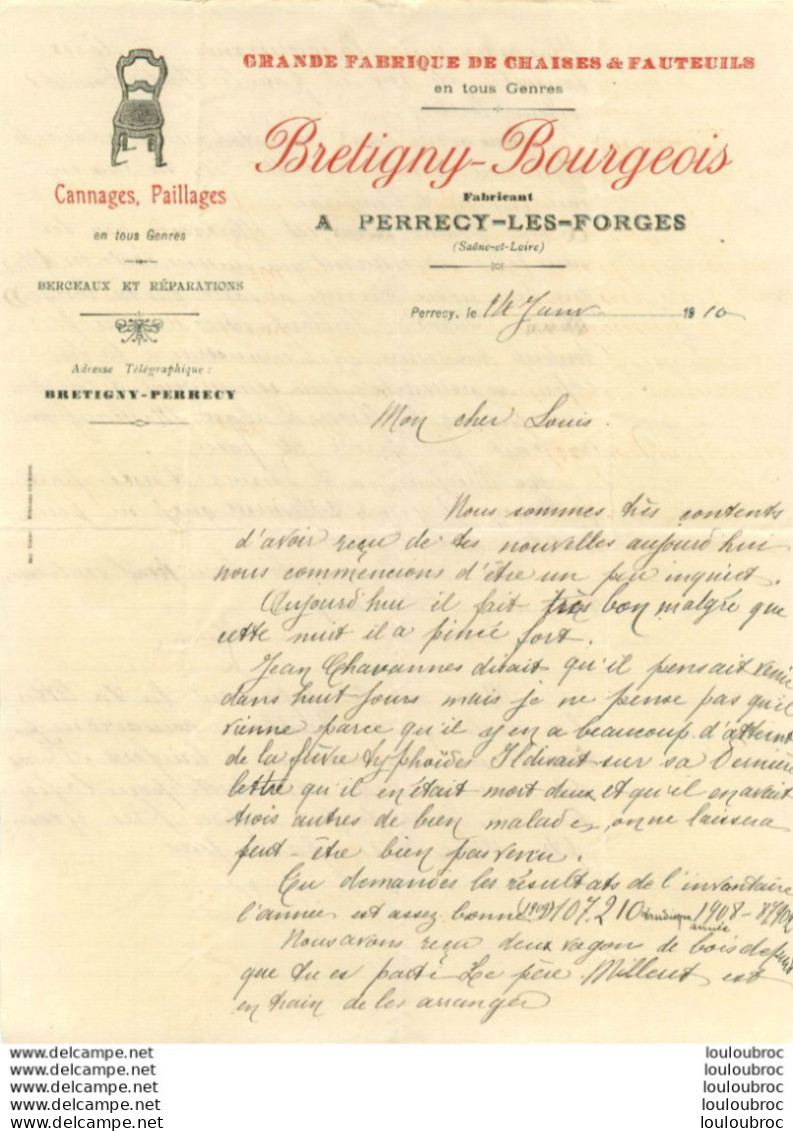 GRANDE FABRIQUE DE CHAISES & FAUTEUILS
en tous Genres
Bretigny-Bourgeois
Fabricant
A PERRECY-LES-FORGES
(Saône-et-Loire)
Cannages, Paillages
en tous Genres
BERCEAUX ET RÉPARATIONS
Adresse Télégraphique :
BRETIGNY-PERRECY
Perrecy, le 14 Janv 1910
Mon cher Louis.
Nous sommes très contents
d'avoir reçu de tes nouvelles aujourd'hui
nous commencions d'être un peu inquiet.
Aujourd'hui il fait très bon malgré que
cette nuit il a pincé fort.
Jean Chavannes disait qu'il pensait venir
dans huit jours mais je ne pense pas qu'il
vienne parce qu'il y en a beaucoup d'atteint
de la fièvre typhoïdes Il disait sur sa Dernière
lettre qu'il en était mort deux et qu'il en avait
trois autres de bien malades, on ne laissera
peut-être bien pas venu.
Tu demandes les résultats de l'inventaire
l'année est assez bonne (1909) 107.210 tandisque 1908 - 87902
année
Nous avons reçu deux vagon de bois depuis
que tu es parti Le père Millerut est
en train de les arranger
www.delcampe.net
www.delcampe.net
www.delcampe.net
www.delcampe.net
www.delcampe.net
louloubroc
louloubroc
louloubroc
louloubroc
louloubroc